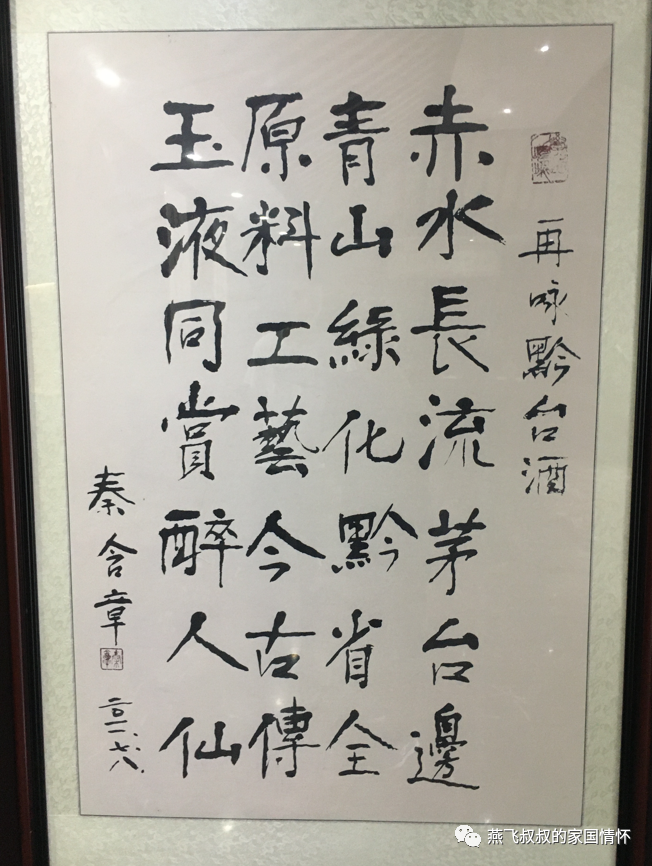 再咏黔台酒
赤水長流茅台邊
青山綠化黔省全
原料工藝今古傳
玉液同賞醉人仙
秦含章
二〇一一.七.八.
燕飞叔叔的家国情怀